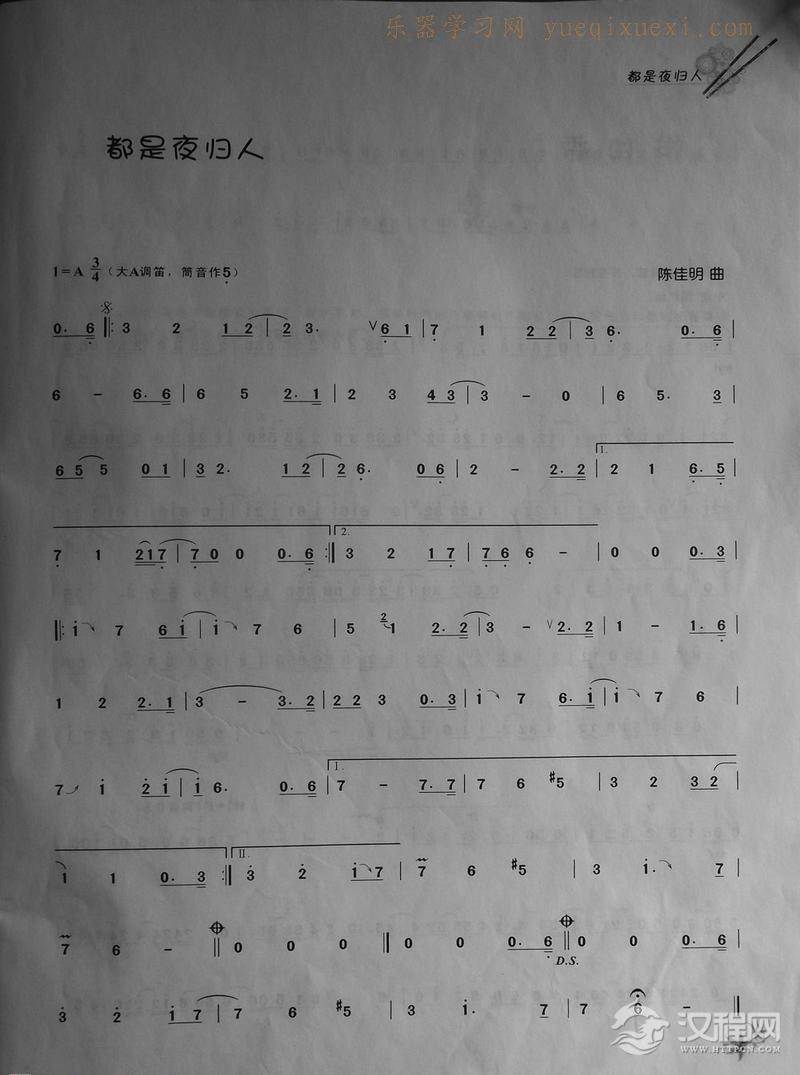 乐器学习网 yueqixuexi.com
都是夜归人
都是夜归人
1=A 3/4 (大A调笛，筒音作5) 陈佳明 曲
0. 6 ‖: 3 2 1 2 | 2 3. ∨ 6 1 | 7 1 2 2 | 3 6. 0. 6 |
6 - 6. 6 | 6 5 2. 1 | 2 3 4 3 | 3 - 0 | 6 5. 3 |
6 5 5 0 1 | 3 2. 1 2 | 2 6. 0 6 | 2 - 2. 2 | 1. 2 1 6. 5 |
7 1 2 1 7 | 7 0 0 0. 6 :‖ 2. 3 2 1 7 | 7 6 6 - | 0 0 0. 3 |
‖: i 7 6 i | i 7 6 | 5 2 1 2. 2 | 3 - ∨ 2. 2 | 1 - 1. 6 |
1 2 2. 1 | 3 - 3. 2 | 2 2 3 0. 3 | i 7 6. i | i 7 6 |
7 i 2 i | i 6. 0. 6 | I. 7 - 7. 7 | 7 6 #5 | 3 2 3 2 |
1 1 0. 3 :‖ II. 3 2 i 7 | 7 6 #5 | 3 i. 7 |
7 6 - ‖ 0 0 0 ‖ 0 0 0. 6 ‖ 0 0 0. 6 |
D.S.
3 2 i 7 | 7 6 #5 | 3 i. 7 | 7 6 - ‖
汉程网
WWW.HTTPCN.COM